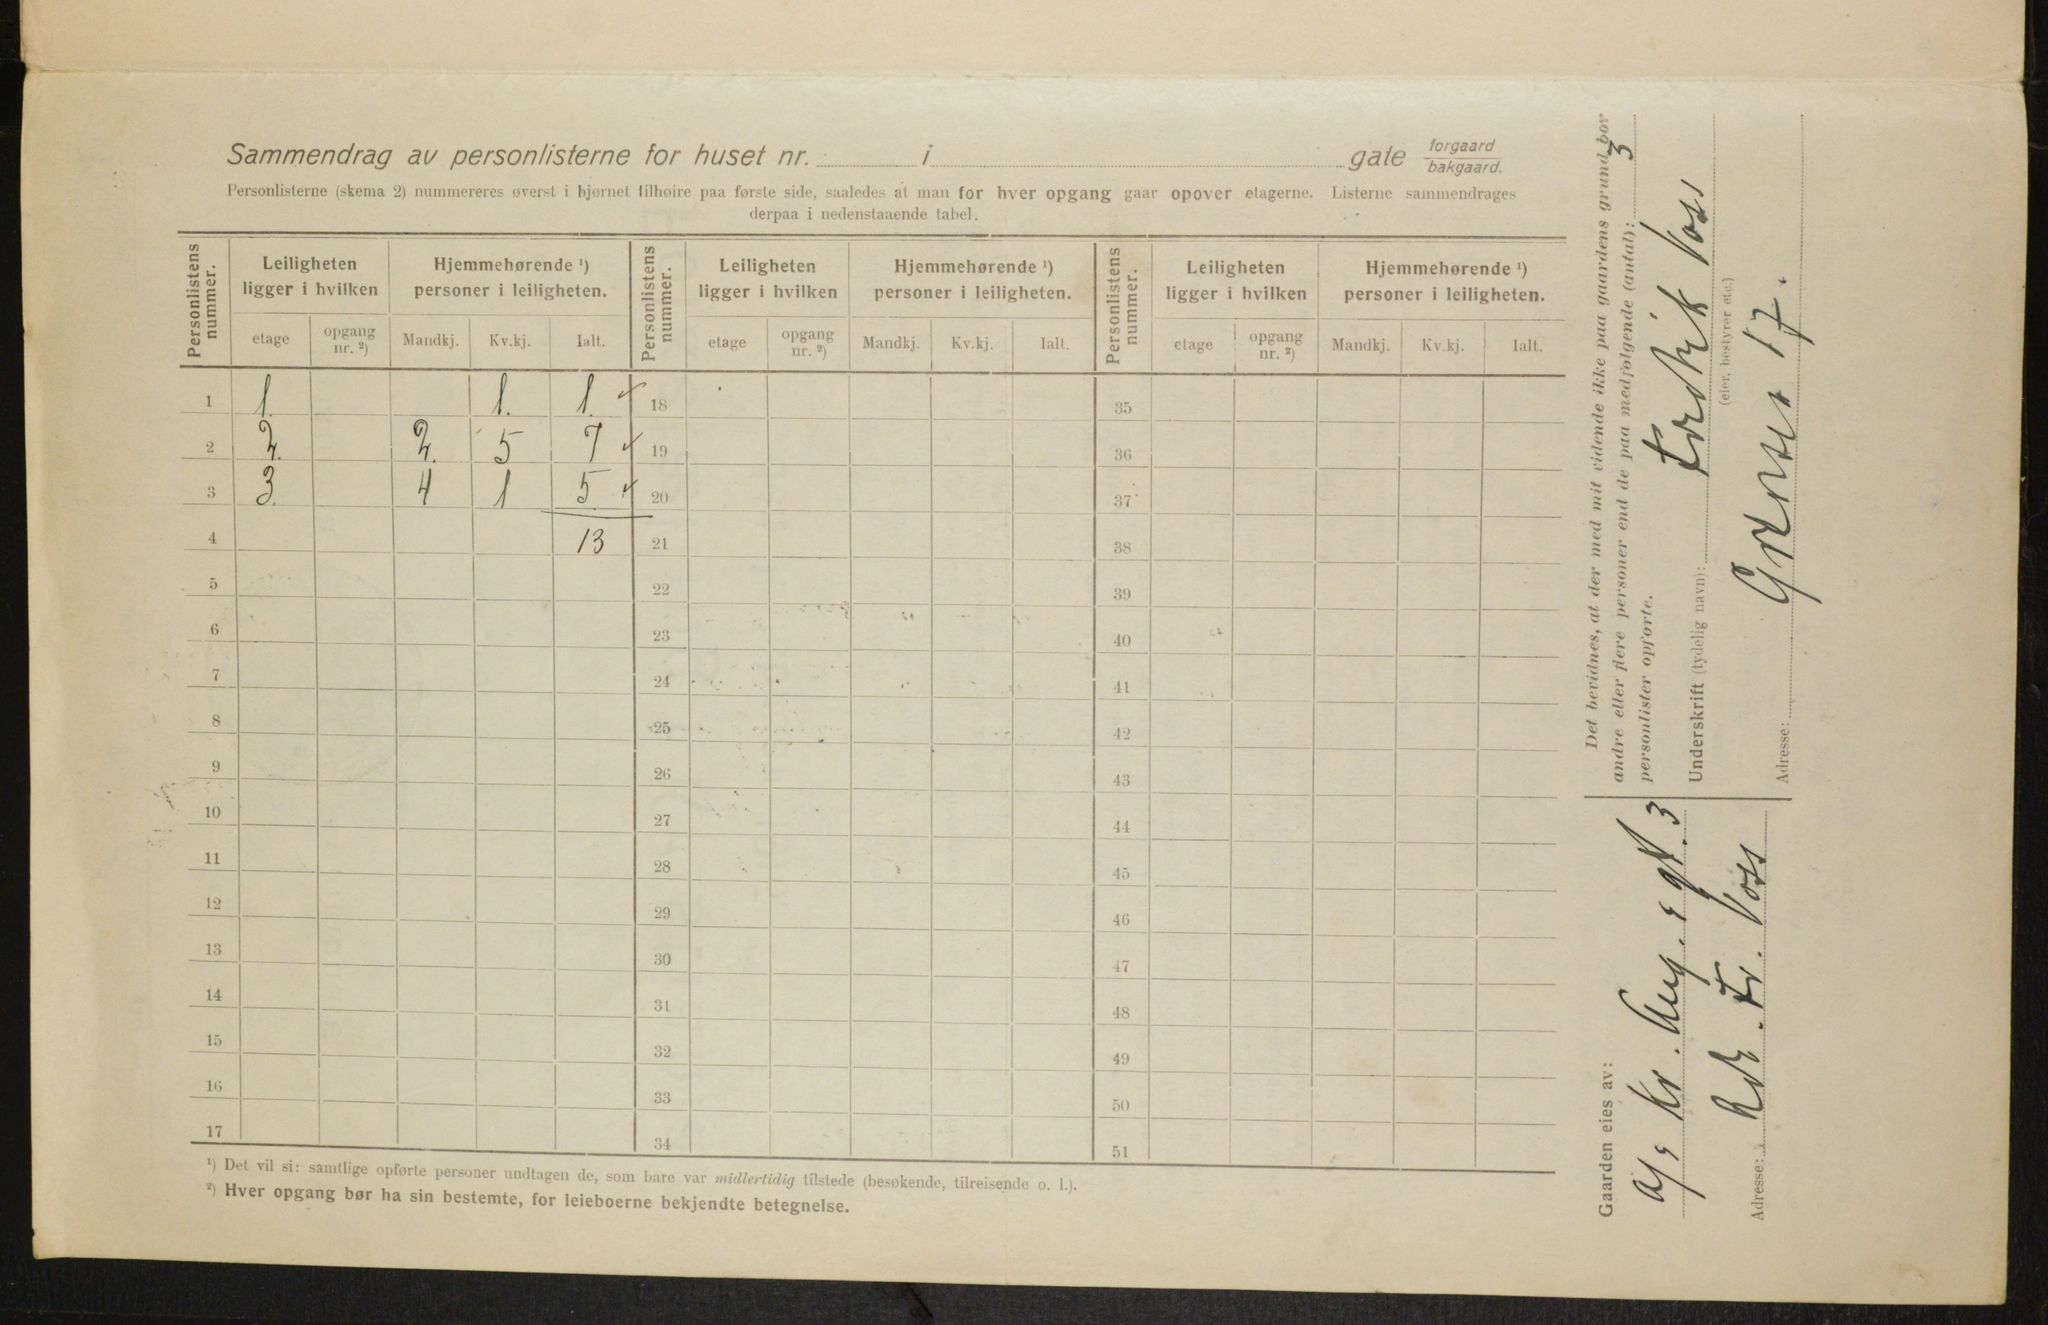 Sammendrag av personlisterne for huset nr. i gate forgaard
bakgaard.
Personlisterne (skema 2) nummereres øverst i hjørnet tilhøire paa første side, saaledes at man for hver opgang gaar opover etagerne. Listerne sammendrages
derpaa i nedenstaaende tabel.
Personlistens nummer. Leiligheten ligger i hvilken Hjemmehørende ¹) personer i leiligheten. Personlistens nummer. Leiligheten ligger i hvilken Hjemmehørende ¹) personer i leiligheten. Personlistens nummer. Leiligheten ligger i hvilken Hjemmehørende ¹) personer i leiligheten.
etage opgang nr. ²) Mandkj. Kv.kj. Ialt. etage opgang nr. ²) Mandkj. Kv.kj. Ialt. etage opgang nr. ²) Mandkj. Kv.kj. Ialt.
1 1. 1. 1. 18 35
2 2. 2. 5 7 19 36
3 3. 4 1 5 20 37
4 13 21 38
5 22 39
6 23 40
7 24 41
8 25 42
9 26 43
10 27 44
11 28 45
12 29 46
13 30 47
14 31 48
15 32 49
16 33 50
17 34 51
¹) Det vil si: samtlige opførte personer undtagen de, som bare var midlertidig tilstede (besøkende, tilreisende o. l.).
²) Hver opgang bør ha sin bestemte, for leieboerne bekjendte betegnelse.
Det bevidnes, at der med mit vidende ikke paa gaardens grund bor
andre eller flere personer end de paa medfølgende (antal): 3
personlister opførte.
Underskrift (tydelig navn): Fredrik Voss
(eier, bestyrer etc.)
Adresse: Grænsen 17.
Gaarden eies av:
A/s Kr. Aug. s gt. 3
Adresse: Fr. Voss